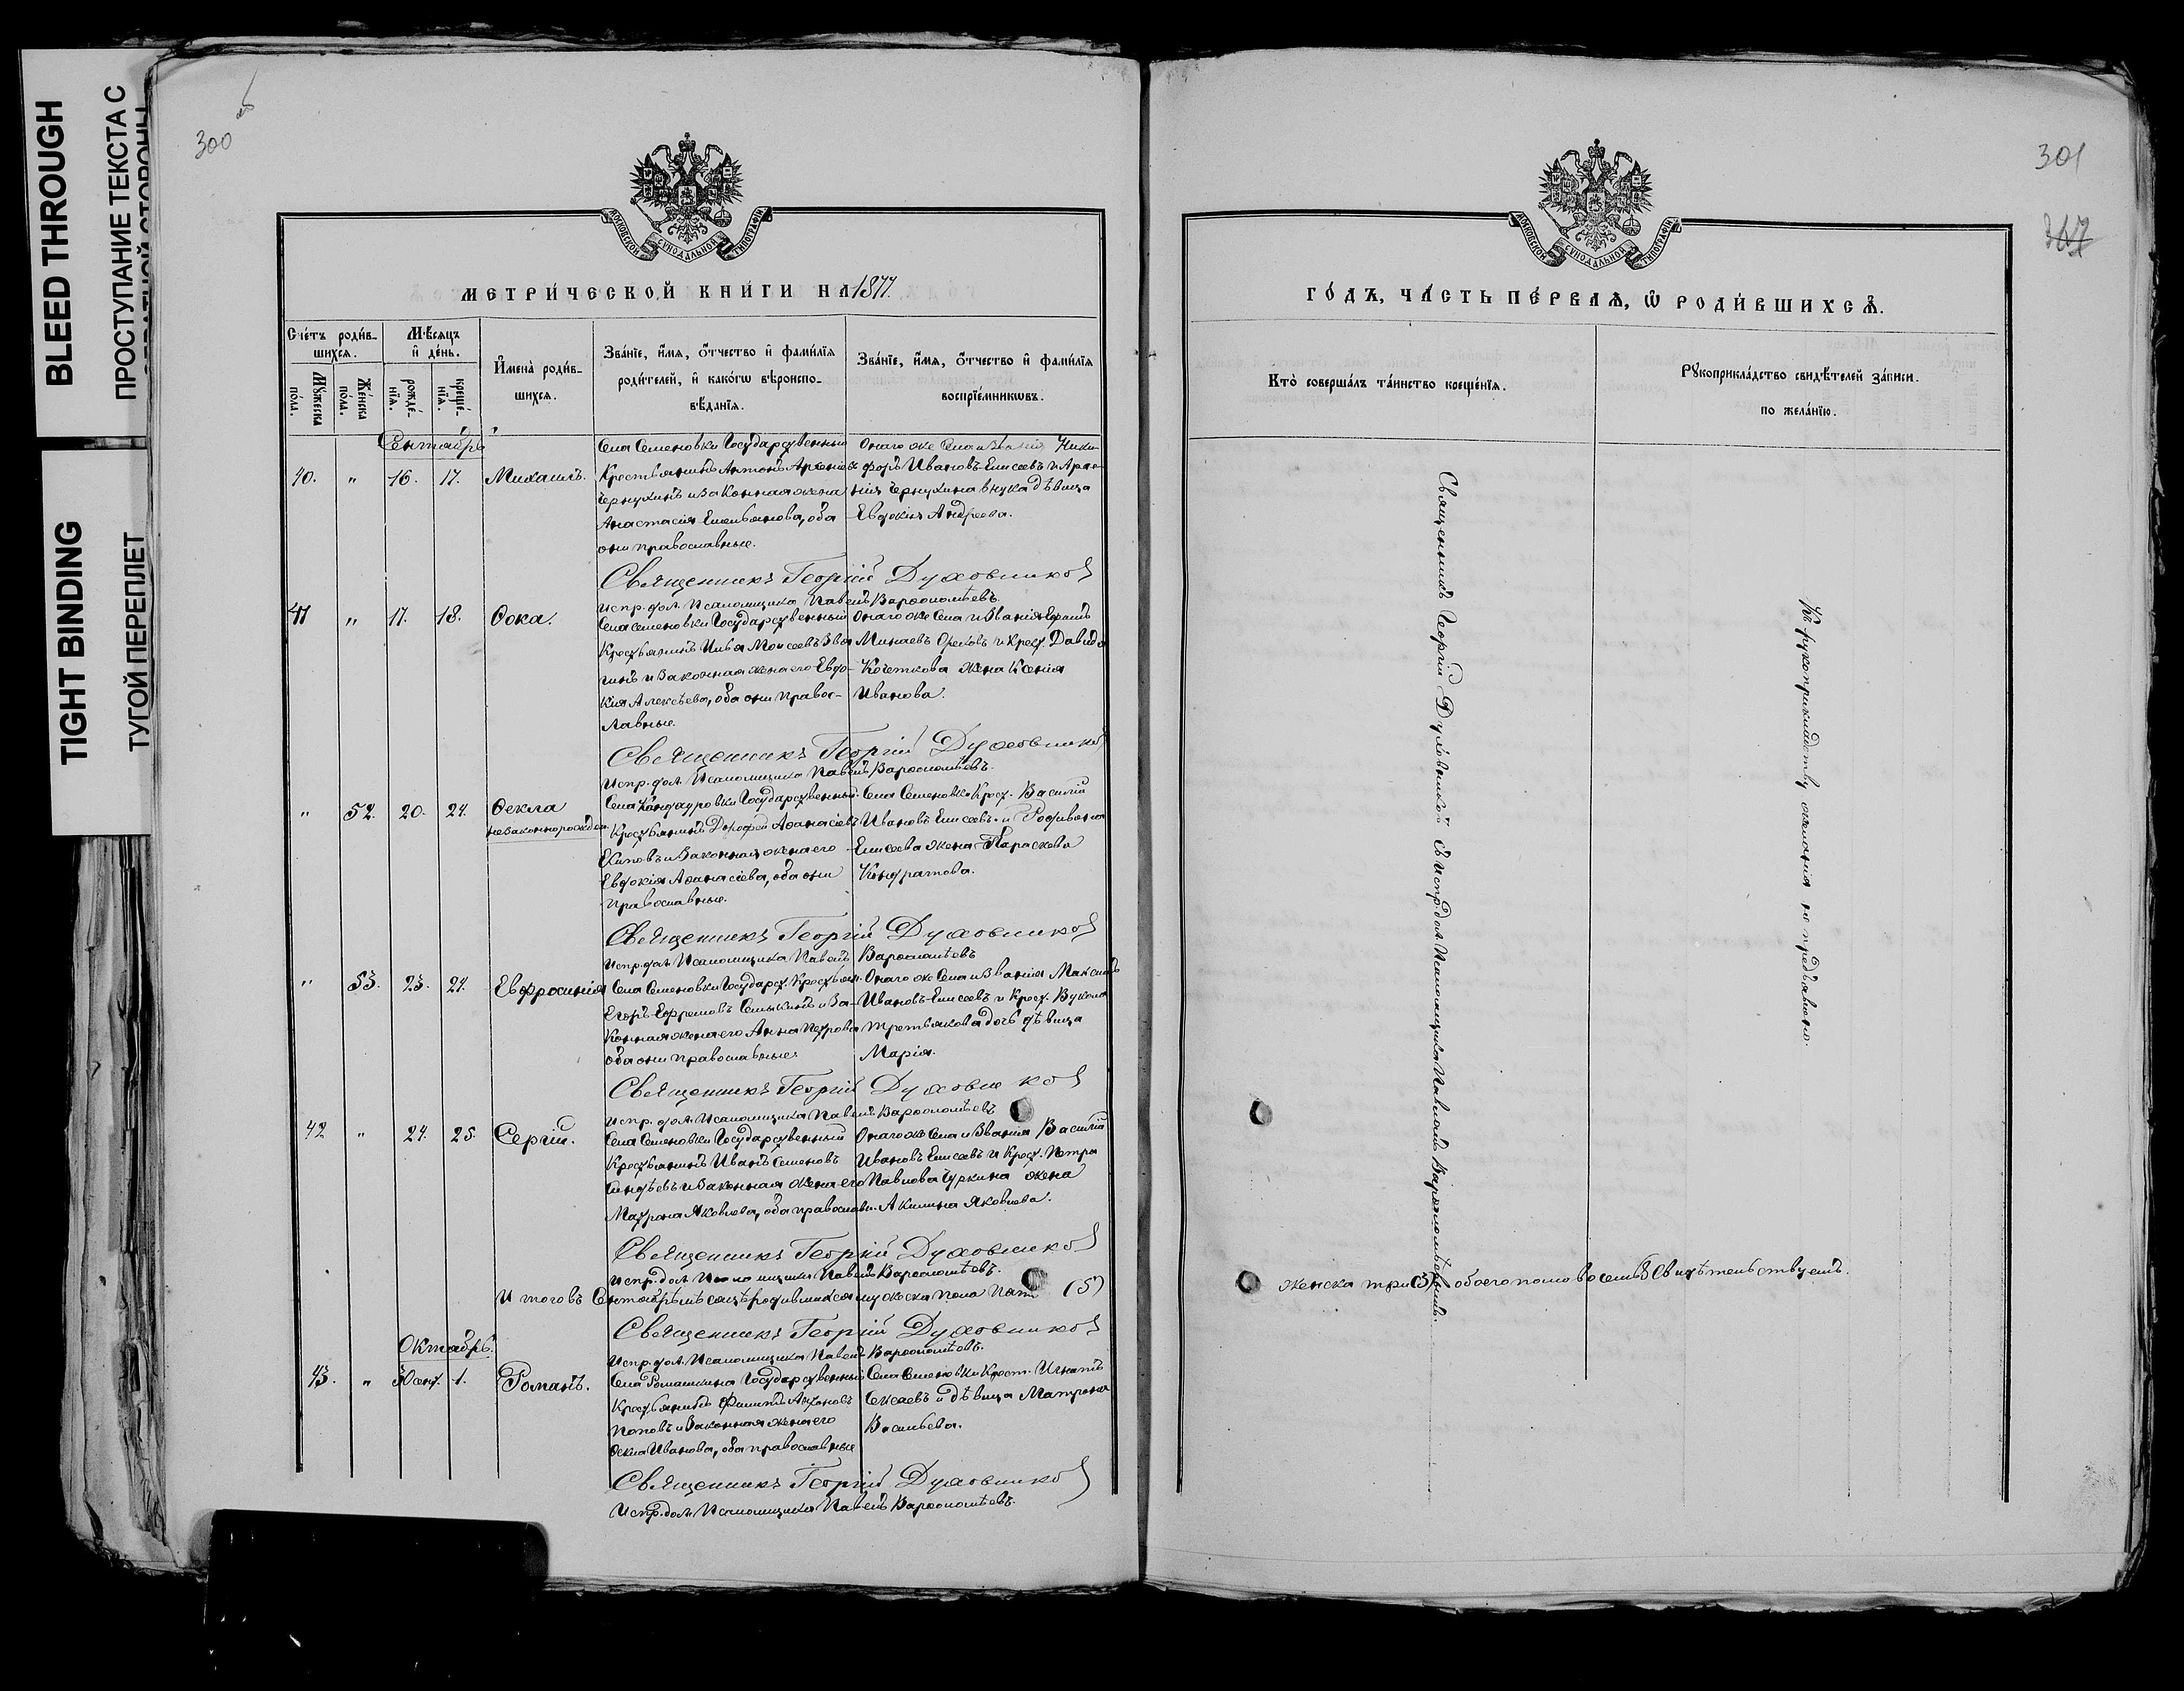 BLEED THROUGH
ПРОСТУПАНИЕ ТЕКСТА С
ОБРАТНОЙ СТОРОНЫ
TIGHT BINDING
ТУГОЙ ПЕРЕПЛЕТ
300 об
МОСКОВСКОЙ СѴНОДАЛЬНОЙ ТИПОГРАФІИ
МЕТРИ́ЧЕСКОЙ КНИ́ГИ НА 1877.
Сче́тъ роди́в-
шихся.
Мꙋ́жеска пола.
Же́нска пола.
Мѣ́сяцъ
и҆ де́нь.
рожде́-
нїя.
креще́-
нїя.
И҆мена̀ роди́в-
шихся.
Зва́нїе, и҆́мя, ѻ҆́тчество и҆ фами́лїя
роди́телей, и҆ како́гѡ вѣроиспо-
вѣ́данїя.
Зва́нїе, и҆́мя, ѻ҆́тчество и҆ фами́лїя
воспрїе́мникѡвъ.
Сентябрь
40. " 16. 17. Михаилъ.
Села Семеновки Государственный
Крестьянинъ Антонъ Арсеніевъ
Чернухинъ и Законная жена
Анастасія Емельянова, оба
они православные.
Онаго же Села и Званія Ники-
форъ Ивановъ Елисеевъ и Арсе-
нія Чернухина внука дѣвица
Евдокія Андреева.
Священникъ Георгій Духовниковъ
Испр. дол. Псаломщика Павелъ Варѳоломѣевъ.
41 " 17. 18. Ѳока.
Села Семеновки Государственный
Крестьянинъ Илья Моисеевъ Звя
гинъ и Законная жена его Евдо-
кія Алексѣева, оба они Правос-
лавные.
Онаго же Села и Званія Ефимъ
Минаевъ Орловъ и Крест. Давида
Кочеткова жена Ксенія
Иванова.
Священникъ Георгій Духовниковъ
Испр. дол. Псаломщика Павелъ Варѳоломѣевъ.
" 52. 20. 21. Ѳекла
незаконнорожден.
Села Кандауровки Государственный
Крестьянинъ Дорофей Аѳанасіевъ
и Законная жена его
Евдокія Аѳанасіева, оба они
Православные.
Села Семеновки Крест. Василій
Ивановъ Елисеевъ и Родивона
Елисеева жена Параскева
Кондратова.
Священникъ Георгій Духовниковъ
Испр. дол. Псаломщика Павелъ Варѳоломѣевъ
" 53. 23. 24. Евфросинія
Села Семеновки Государст. Крестьян.
Егоръ Ефремовъ Сенькинъ и За-
конная жена его Анна Петрова
оба они православные.
Онаго же Села и Званія Максимъ
Ивановъ Елисеевъ и Крест. Вукола
Третьякова дочь дѣвица
Марія.
Священникъ Георгій Духовниковъ
Испр. дол. Псаломщика Павелъ Варѳоломѣевъ
42 " 24. 25. Сергій.
Села Семеновки Государственный
Крестьянинъ Иванъ Семеновъ
и Законная жена его
Матрона Яковлева, оба православн.
Онаго же Села и Званія Василій
Ивановъ Елисеевъ и Крест. Петра
Павлова Чуркина жена
Акилина Яковлева.
Священникъ Георгій Духовниковъ
Испр. дол. Псаломщика Павелъ Варѳоломѣевъ.
Итого въ Сентябрѣ мѣсяцѣ родившихся мужеска пола пять (5)
Священникъ Георгій Духовниковъ
Испр. дол. Псаломщика Павелъ Варѳоломѣевъ.
Октябрь.
43. " 30 сент. 1. Романъ.
Села Ромашкина Государственный
Крестьянинъ Филиппъ Антоновъ
Поповъ и Законная жена его
Ѳекла Иванова, оба православные
Села Семеновки Крест. Игнатъ
и дѣвица Матрона
Васильева.
Священникъ Георгій Духовниковъ
Испр. дол. Псаломщика Павелъ Варѳоломѣевъ.
301
МОСКОВСКОЙ СѴНОДАЛЬНОЙ ТИПОГРАФІИ
ГО́ДЪ, ЧА́СТЬ ПЕ́РВАѦ, Ѡ҆ РОДИ́ВШИХСѦ.
Кто̀ соверша́лъ та́инство креще́нїя.
Рꙋкоприкла́дство свидѣ́телей за́писи.
по жела́нїю.
Священникъ Георгій Духовниковъ съ Испр. дол. Псаломщика Павломъ Варѳоломѣевымъ.
Къ рукоприкладству желанія не предъявлено.
женска три (3) обоего пола восемь 8 Свидѣтельствуемъ.